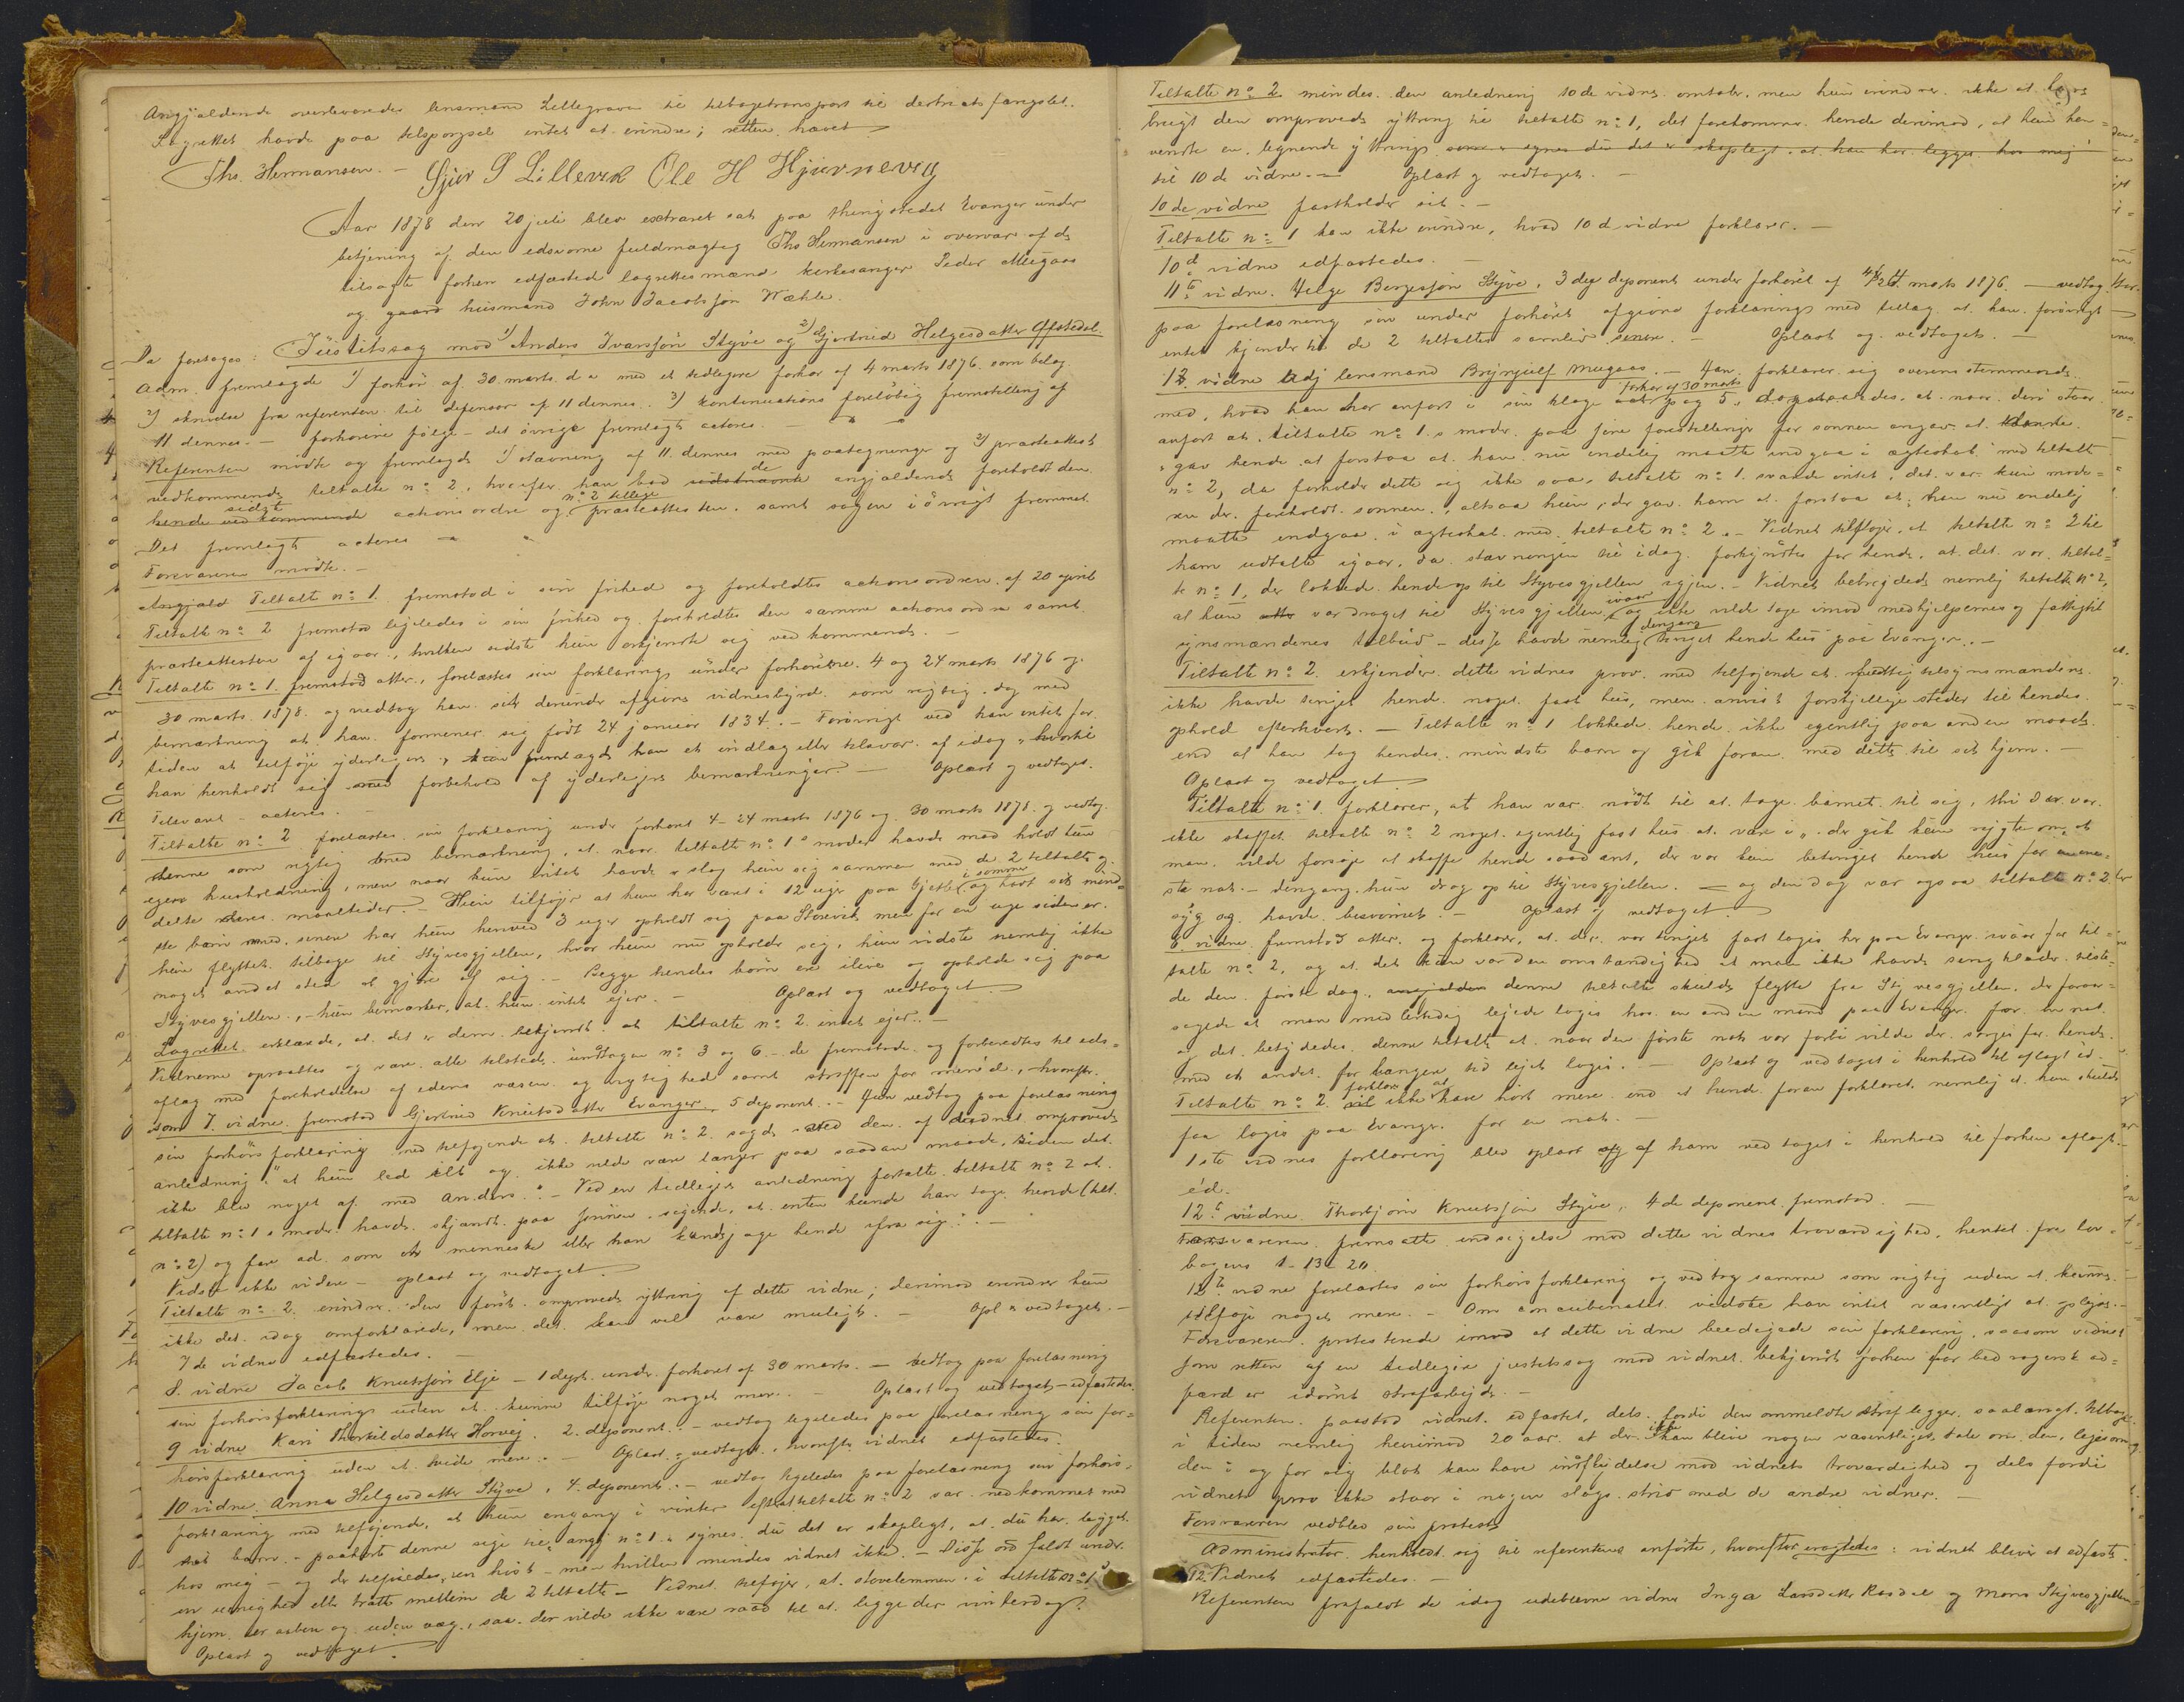 Angjældende overleveredes lensmand Lillegraven til tilbagetransport til distriktsfængslet.
Lagrettet havde paa tilspørgsel intet at erindre; retten hævet
Ths. Hermansen. – Sjur S Lillevik Ole H Hjørnevig
Aar 1878 den 20 juli blev extraret sat paa thingstedet Evanger under
betjening af den edsvorne fuldmægtig Ths Hermansen i overvær af de
tilsagte forhen edfæstede lagrettesmænd kirkesanger Peder Mugaas
og gaard husmand John Jacobsjøn Wæhle.
Da foretoges: Justitssag mod 1) Anders Ivarsjøn Styve og 2) Gjertrud Helgesdatter Offstedal.
Adm. fremlagde 1/ forhør af 30. marts d a med et tidligere forhør af 4 marts 1876 som bilag
2/ skrivelse fra referenten til defensor af 11 dennes. 3/ kontinuations foreløbig fremstilling af
11 dennes. – forhørene følge – det øvrige fremlagte acteres.
Referenten mødte og fremlagde 1/ stævning af 11. dennes med paategninger og 2/ præsteattest
vedkommende tiltalte n: 2, hvorefter han bad de angjældende foreholdt den
sidst actionsordre og n: 2 tillige præsteattesten. samt sagen i øvrigt fremmet.
Det fremlagte acteres
Forsvareren mødte. –
Angjæld Tiltalte n: 1. fremstod i sin frihed og foreholdtes actionsordren af 20 april
Tiltalte n: 2 fremstod ligeledes i sin frihed og foreholdtes den samme actionsordre samt
præsteattesten af igaar, hvilken sidste hun erkjendte sig vedkommende. –
Tiltalte n: 1. fremstod atter, forelæstes sin forklaring under forhørene 4 og 24 marts 1876 og
30 marts 1878. og vedtog han sit derunder afgivne vidnesbyrd som rigtig. dog med
bemærkning at han formener sig født 24 januar 1834. – Forøvrigt ved han intet for
tiden at tilføje yderligere, fremlagde han et indlæg eller tilsvar af idag, hvortil
han henholdt sig med forbehold af yderligere bemærkninger. – Oplæst og vedtaget.
Tilsvaret – acteres.
Tiltalte n: 2 forelæstes sin forklaring under forhøret 4 – 24 marts 1876 og 30 marts 1878. og vedtog
denne som rigtig med bemærkning, at naar tiltalte n: 1s moder havde mad holdt hun
egen husholdning, men naar hun intet havde slog hun sig sammen med de 2 tiltalte og
delte deres maaltider. – Hun tilføjer at hun har været i 12 uger paa i sommer og havt sit mind=
ste barn med. senere har hun henved 3 uger opholdt sig paa Storevik men for en uge siden er
hun flyttet tilbage til Styvesgjellen, hvor hun nu opholder sig, hun vidste nemlig ikke
noget andet sted at gjøre af sig. – Begge hendes børn ere ilive og opholde sig paa
Styvesgjellen, – hun bemærker, at hun intet ejer. – Oplæst og vedtaget.
Lagrettet erklærede, at det er dem bekjendt at tiltalte n: 2. intet ejer. –
Vidnerne opraabtes og vare alle tilstede undtagen n: 3 og 6. – de fremstode og forberedtes til eds=
aflæg med foreholdelse af edens væsen og vigtighed samt straffen for mened, hvorefter
som 7. vidne fremstod Gjertrud Knutsdatter Evanger, 5 deponent. – Hun vedtog paa forelæsning
sin forhørsforklaring med tilføjende at tiltalte n: 2. sagde ved den af vidnet omprovede
anledning "at hun led ilde og ikke vilde være længer paa saadan maade, siden det
ikke blev noget af med Anders." – Ved en tidligere anledning fortalte tiltalte n: 2 at
tiltalte n: 1s moder havde skjændt paa sønnen, sigende, at enten kunde han tage hende (tilt.
n: 2) og fare ad som et menneske eller han kunde jage hende fra sig." –
Vidste ikke videre – oplæst og vedtaget.
Tiltalte n: 2. erindrer den først omprovede yttring af dette vidne; derimod erindrer hun
ikke det idag omforklarede, men det kan vel være muligt. Opl & vedtaget. –
7de vidne edfæstedes. –
8. vidne Jacob Knutsjøn Elje – 1 dept. under forhøret af 30 marts. – vedtog paa forelæsning
sin forhørsforklaring uden at kunne tilføje noget mere. – Oplæst og vedtaget – edfæstedes.
9 vidne Kari Thorkildsdatter Horvej. 2. deponent. – vedtog ligeledes paa forelæsning sin for=
hørsforklaring uden at vide mere. – Oplæst & vedtaget, hvorefter vidnet edfæstedes.
10 vidne Anna Helgesdatter Styve, 4. deponent. – vedtog ligeledes paa forelæsning sin forhørs=
forklaring med tilføjende, at hun engang i vinter efterat tiltalte n: 2 var nedkommet med
sit barn. – paahørte denne sige til angj n: 1. "synes du det er skapligt, at du har ligget
hos mig – og der tilføiedes, en høst – men hvilken mindes vidnet ikke. – Disse ord faldt under
en uenighed eller trætte mellem de 2 tiltalte – Vidnet tilføjer, at stovelemmen i tiltalte n: 1s
hjem er aaben og uden væg, saa der vilde ikke være raad til at ligge der vinterdag.
Oplæst og vedtaget.
Tiltalte n: 2. mindes den anledning 10de vidne omtaler. men hun erindrer ikke at have
brugt den omprovede yttring til tiltalte n: 1, det forekommer hende derimod, at hun hen=
vendte en lignende yttring som – synes du det er skapligt at han har ligget hos mig
til 10de vidne. – Oplæst og vedtaget. –
10de vidne fastholder sit. –
Tiltalte n: 1 kan ikke erindre, hvad 10de vidne forklarer. –
10de vidne edfæstedes. –
11te vidne. Helge Bergesjøn Styve, 3die deponent under forhøret af 4/24 marts 1876. – vedtog
paa forelæsning sin under forhøret afgivne forklaring med tillæg at han forøvrigt
intet kjender til de 2 tiltaltes samliv senere. – Oplæst og vedtaget. –
12 vidne Adj lensmand Brynjulf Mugaas. – Han forklarer sig overensstemmende
med, hvad han har anført i sin klage forhør af 30 marts pag 5, at naar deri staar
anført at tiltalte n: 1.s moder paa sine forestillinger for sønnen angaar
"gav hende at forstaa at han nu endelig maatte indgaa i ægteskab med tiltalte
n: 2, da forholder dette sig ikke saa, tiltalte n: 1. svarede intet, det var kun mode=
ren der foreholdt sønnen, altsaa hun, der gav ham at forstaa at han nu endelig
maatte indgaa i ægteskab med tiltalte n: 2. – Vidnet tilføjer, at tiltalte n: 2 til
ham udtalte igaar, da stævningen til idag forkyndtes for hende, at det var tiltal=
te n: 1, der lokkede hende op til Styvesgjellen igjen. – Vidnet bebrejdede nemlig tiltalte n: 2,
at hun var draget til Styvesgjellen ivaar og ikke vilde tage imod medhjelpernes og fattigtil
synsmændenes tilbud – disse havde nemlig dengang tinget hende hus paa Evanger. –
Tiltalte n: 2. erkjender dette vidnes prov. med tilføjende at fattigtilsynsmændene
ikke havde tinget hende noget fast hus, men anvist forskjellige steder til hendes
ophold efterhvert. – Tiltalte n: 1 lokkede hende ikke egentlig paa anden maade
end at han tog hendes mindste barn og gik foran med dette til sit hjem. –
Oplæst og vedtaget
Tiltalte n: 1. forklarer, at han var nødt til at tage barnet til sig, thi der var
ikke skaffet tiltalte n: 2 noget egentlig fast hus at være i, der gik kun rygte om, at
man vilde forsøge at skaffe hende saadant, der var kun betinget hende hus for en ene=
ste nat. – dengang hun drog op til Styvesgjellen. – og den dag var ogsaa tiltalte n: 2
syg og havde besvimet. – Oplæst og vedtaget.
6. vidne fremstod atter. og forklarer, at der var tinget fast logis her paa Evanger ivaar for til=
talte n: 2, og at det kun var den omstændighed at man ikke havde sengklæder tilste=
de den første dag, denne tiltalte skulde flytte fra Styvesgjellen, der foraar=
sagede at man midlertidig lejede logis hos en anden mand paa Evanger for en nat
og det betydedes denne tiltalte at naar den første nat var forbi vilde der sørges for hende
med et andet for længere tid lejet logis. – Oplæst og vedtaget i henhold til aflagt ed.
Tiltalte n: 2. forklarer at ikke have hørt mere end at hende foran forklaret, nemlig at hun skulde
faa logis paa Evanger for en nat. –
1ste vidnes forklaring blev oplæst og af ham vedtaget i henhold til forhen aflagt
ed.
12te vidne Thorbjørn Knutsjøn Styve, 4de deponent fremstod. –
Forsvareren fremsatte indsigelse mod dette vidnes troværdighed, hentet fra lov=
bogens 1 – 13 – 20
12te vidne forelæstes sin forhørsforklaring og vedtog samme som rigtig uden at kunne
tilføje noget mere. – Om concubinatet vidste han intet væsentligt at oplyse. –
Forsvareren protesterede imod at dette vidne beedigede sin forklaring, saasom vidnet
som retten af en tidligere justitssag mod vidnet bekjendt forhen for bedragersk ad=
færd er idømt strafarbejde. –
Referenten paastod vidnet edfæstet, dels fordi den ommeldte straf ligger saalangt tilbage
i tiden nemlig henimod 20 aar. at der ikke kan blive nogen væsentligere tale om den, ligesom
den i og for sig blot kan have indflydelse mod vidnets troværdighed og dels fordi
vidnets prov ikke staar i nogen slags strid med de andre vidner. –
Forsvareren vedblev sin protest
Administrator henholdt sig til referentens anførte, hvorefter eragtedes: vidnet bliver at edfæste.
12. Vidnet edfæstedes. –
Referenten frafaldt de idag udeblevne vidner Inga Larsdatter Rasdal og Mons Styvesgjellen